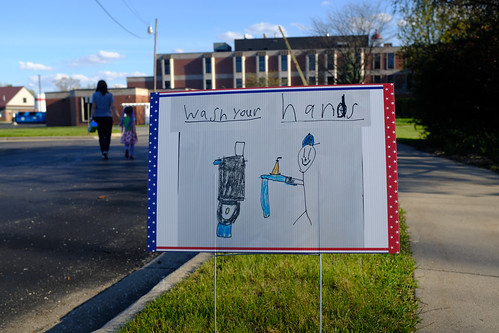 wash your hands